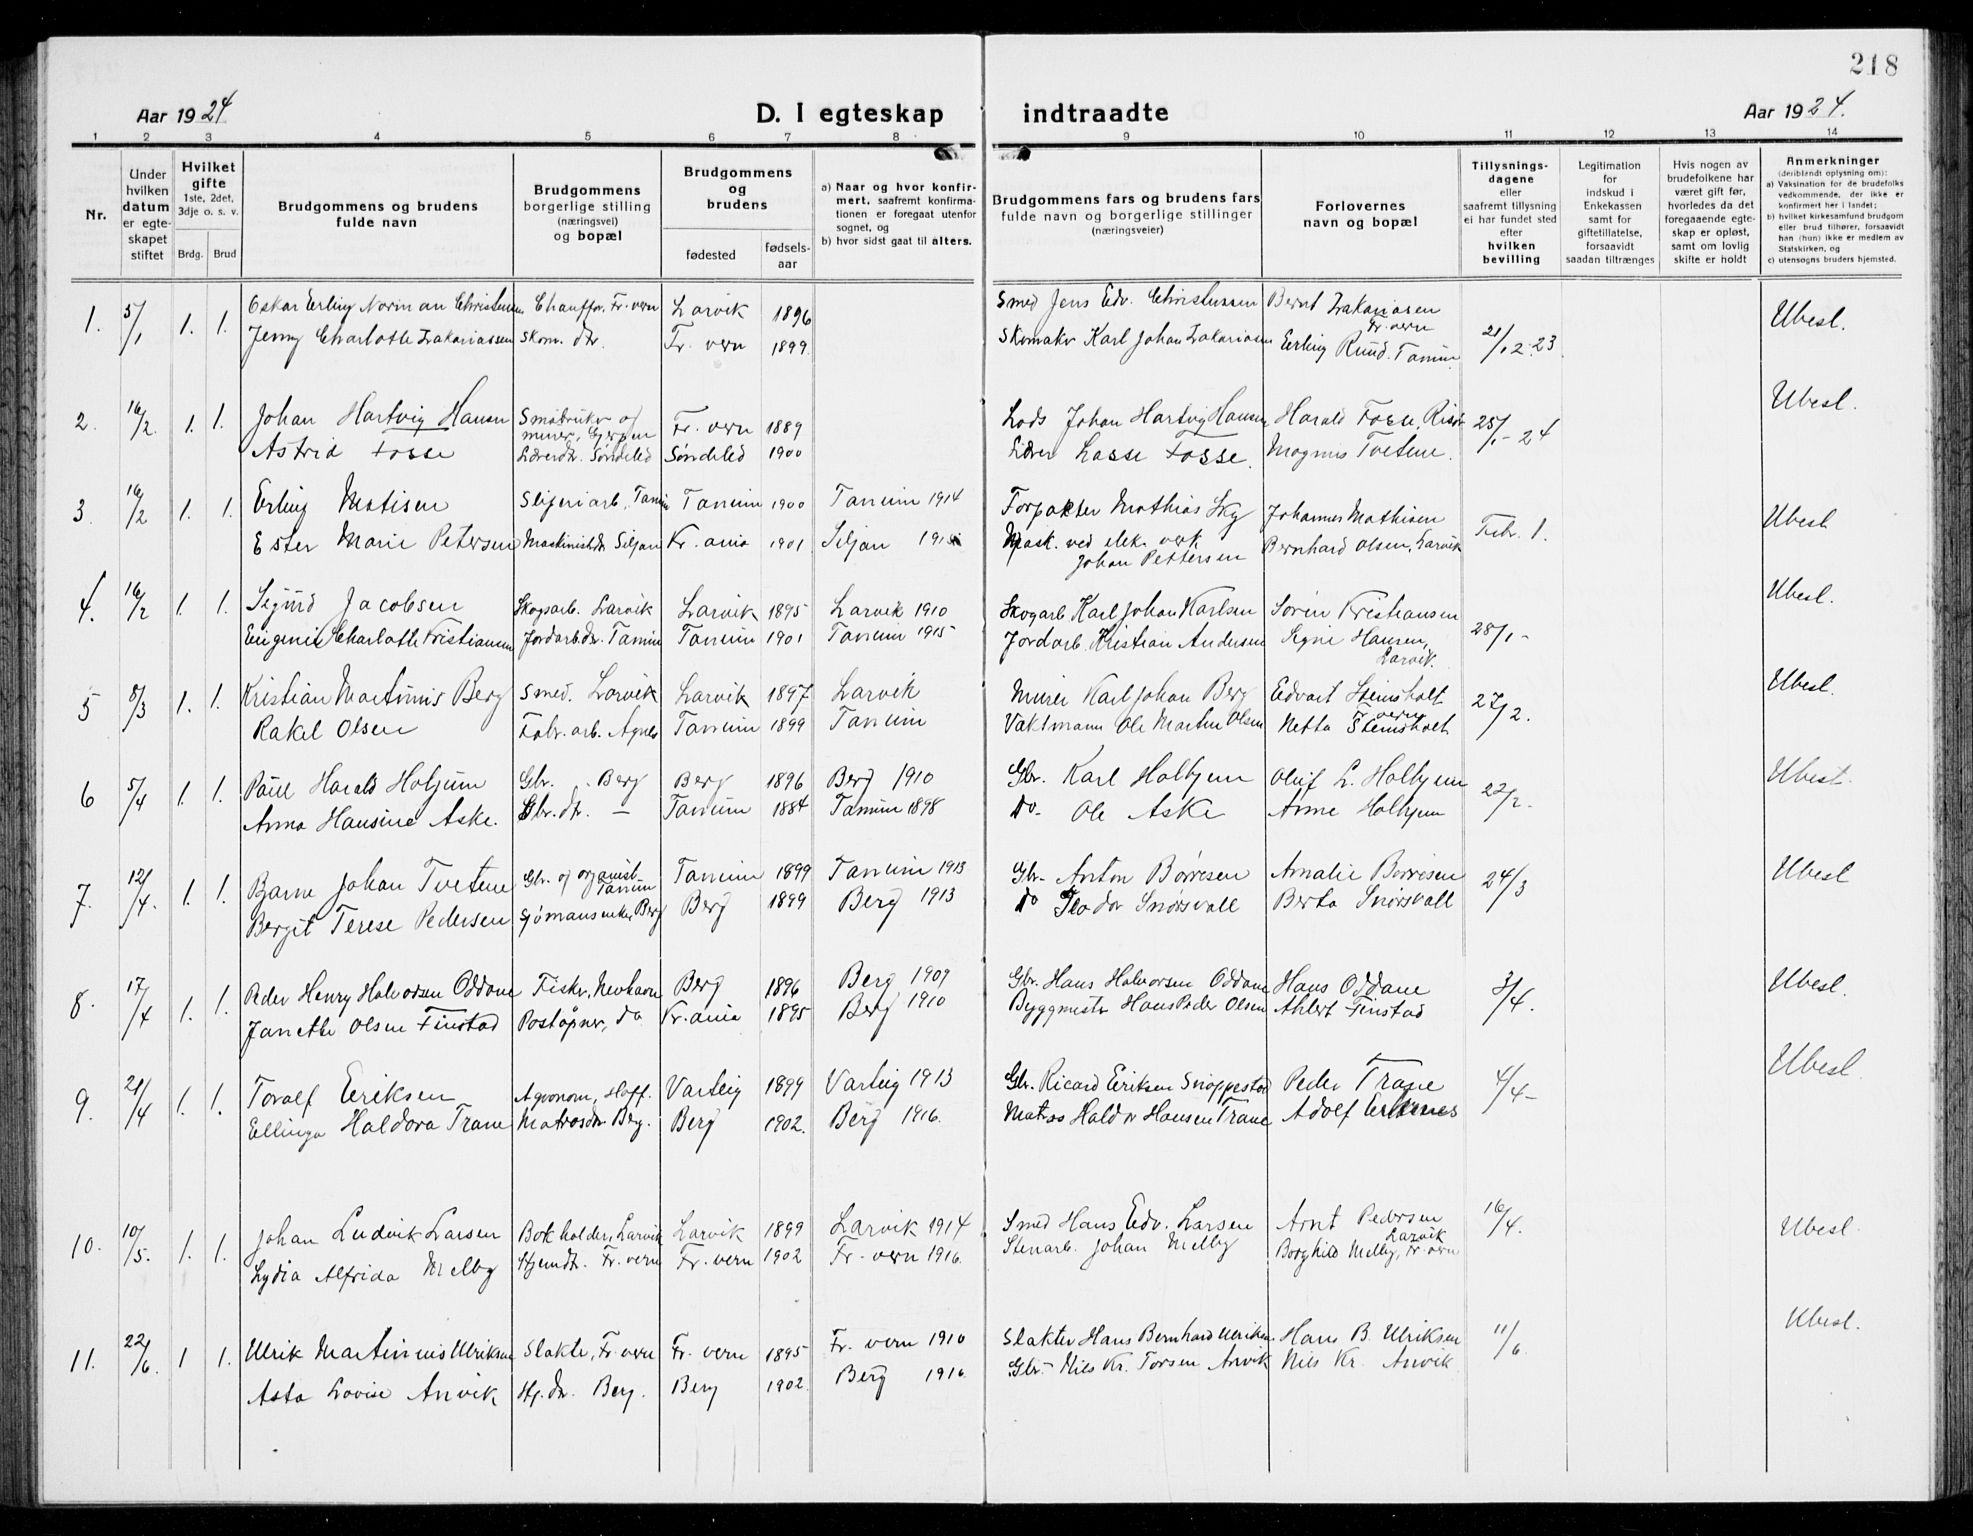 218
Aar 1924 D. I egteskap indtraadte Aar 1924.
1 2 3 4 5 6 7 8 9 10 11 12 13 14
Nr.
Under hvilken datum er egteskapet stiftet
Hvilket gifte 1ste, 2det, 3dje o. s. v.
Brdg. Brud
Brudgommens og brudens fulde navn
Brudgommens borgerlige stilling (næringsvei) og bopæl
Brudgommens og brudens
fødested fødselsaar
a) Naar og hvor konfirmert, saafremt konfirmationen er foregaat utenfor sognet, og
b) hvor sidst gaat til alters.
Brudgommens fars og brudens fars fulde navn og borgerlige stillinger (næringsveier)
Forlovernes navn og bopæl
Tillysningsdagene eller saafremt tillysning ei har fundet sted efter hvilken bevilling
Legitimation for indskud i Enkekassen samt for giftetillatelse, forsaavidt saadan tiltrænges
Hvis nogen av brudefolkene har været gift før, hvorledes da det foregaaende egteskap er opløst, samt om lovlig skifte er holdt
Anmerkninger (deriblandt oplysning om):
a) Vaksination for de brudefolks vedkommende, der ikke er konfirmert her i landet;
b) hvilket kirkesamfund brudgom eller brud tilhører, forsaavidt han (hun) ikke er medlem av Statskirken, og
c) utensogns bruders hjemsted.
1. 5/1 1. 1. Oskar Erling Norman Christensen Chauffør, Fr. vern Larvik 1896 Smed Jens Edv. Christensen Bernt Zakariasen Fr. vern 21/12 23 Ubesl.
Jenny Charlotte Zakariassen Skom. dtr. Fr. vern 1899 Skomaker Karl Johan Zakariasen Erling Ruud. Tanum
2. 16/2. 1. 1. Johan Hartvig Hansen Småbruker og murer, Gjerpen Fr. vern 1889 Lods Johan Hartvig Hansen Harald Fosse, Risør 25/1 - 24 Ubesl.
Astrid Fosse Lærerdtr. Søndeled Søndeled 1900 Lærer Lasse Fosse. Magnus Tvetene.
3. 16/2 1. 1. Erling Matisen Sliperiarb. Tanum Tanum 1900 Tanum 1914 Forpakter Mathias Sky Johannes Mathisen Febr. 1. Ubesl.
Ester Marie Petersen Maskinistdtr. Siljan Kr. ania 1901 Siljan Mask. ved elek. verk Johan Pettersen Bernhard Olsen, Larvik
4. 16/2 1. 1. Sigurd Jacobsen Skogsarb. Larvik Larvik 1895 Larvik 1910 Skogarb. Karl Johan Karlsen Søren Kristiansen 28/1 - Ubesl.
Eugenie Charlotte Kristiansen Jordarb.dtr. Tanum Tanum 1901 Tanum 1915 Jordarb. Kristian Andersen Signe Hansen, Larvik.
5 8/3 1. 1. Kristian Martinius Berg Smed. Larvik Larvik 1897 Larvik Murer Karl Johan Berg Edvart Steinsholt Fr. vern 27/2. Ubesl.
Rakel Olsen Fabr. arb. Agnes Tanum 1899 Tanum Vaktmann Ole Martin Olsen Netta Steinsholt
6 5/4 1. 1. Paul Harald Holjum Gbr. Berg Berg 1896 Berg 1910 Gbr. Karl Holhjem Oluf L. Holhjem 22/2. Ubesl.
Anna Hansine Aske. Gbr. dtr. — Tanum 1884 Tanum 1898 Do. Ole Aske Anne Holhjem
7. 12/4. 1. 1. Bjarne Johan Tvetene Gbr. og organist Tanum Tanum 1899 Tanum 1913 Gbr. Anton Børresen Amalie Børresen 24/3 Ubesl
Bergit Terese Pedersen Sjømansenke Berg Berg 1899 Berg 1913 Do Snørsvall Berta Snørsvall
8. 17/4 1. 1. Peder Henry Halvorsen Oddane Fisker, Nevlhavn Berg 1896 Berg 1909 Gbr. Hans Halvorsen Oddane Hans Oddane 3/4. Ubesl.
Janette Olsen Finstad Poståpner, do Kr. ania 1895 Berg 1910 Byggmester Hans Peder Olsen Ahlert Finstad
9. 21/4 1. 1. Toralf Eriksen Agronom, Varteig 1899 Varteig 1913 Gbr. Ricard Eriksen Snoppestad Peder Trane 4/4 - Ubesl
Ellinga Haldora Trane Matrosdtr. Berg. Berg 1902. Berg 1916. Matros Haldor Hansen Trane Adolf
10. 10/5. 1. 1. Johan Ludvik Larsen Bokholder, Larvik Larvik 1899 Larvik 1914 Smed Hans Edv. Larsen Arnt Pedersen Larvik 16/4. Ubesl.
Lydia Alfrida Melby Hjemdtr. Fr. vern Fr. vern 1902 Fr. vern 1916. Stenarb. Johan Melby Borghild Melby, Fr. vern
11. 22/6. 1 1. Ulrik Martinius Ulriksen Slakter, Fr. vern Fr. vern 1895 Fr. vern 1910 Slakter Hans Bernhard Ulriksen Hans B. Ulriksen 11/6 Ubesl.
Asta Lovise Anvik Hj. dtr. Berg. Berg 1902. Berg 1916. Gbr. Nils Kr. Torsen Anvik Nils Kr. Anvik